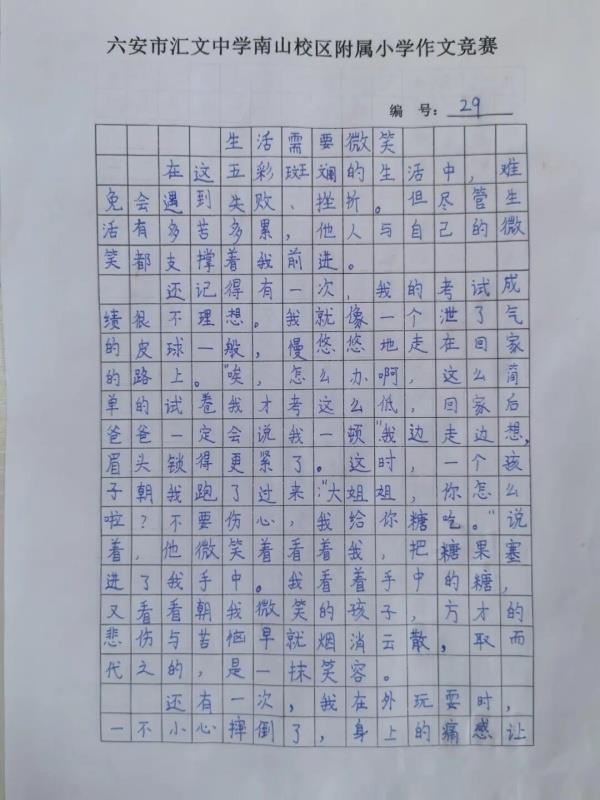 六安市汇文中学南山校区附属小学作文竞赛
编 号：29
生活需要微笑
在这五彩斑斓的生活中，难
免会遇到失败、挫折。但尽管生
活有多苦多累，他人与自己的微
笑都支撑着我前进。
还记得有一次，我的考试成
绩很不理想。我就像一个泄了气
的皮球一般，慢悠悠地走在回家
的路上。“唉，怎么办啊，这么简
单的试卷我才考这么低，回家后
爸爸一定会说我一顿”我边走边想，
眉头锁得更紧了。这时，一个孩
子朝我跑了过来：“大姐姐，你怎么
啦？不要伤心，我给你糖吃。”说
着，他微笑着看着我，把糖果塞
进了我手中。我看着手中的糖，
又看看朝我微笑的孩子，方才的
悲伤与苦恼早就烟消云散，取而
代之的，是一抹笑容。
还有一次，我在外玩耍时，
一不小心摔倒了，身上的痛感让